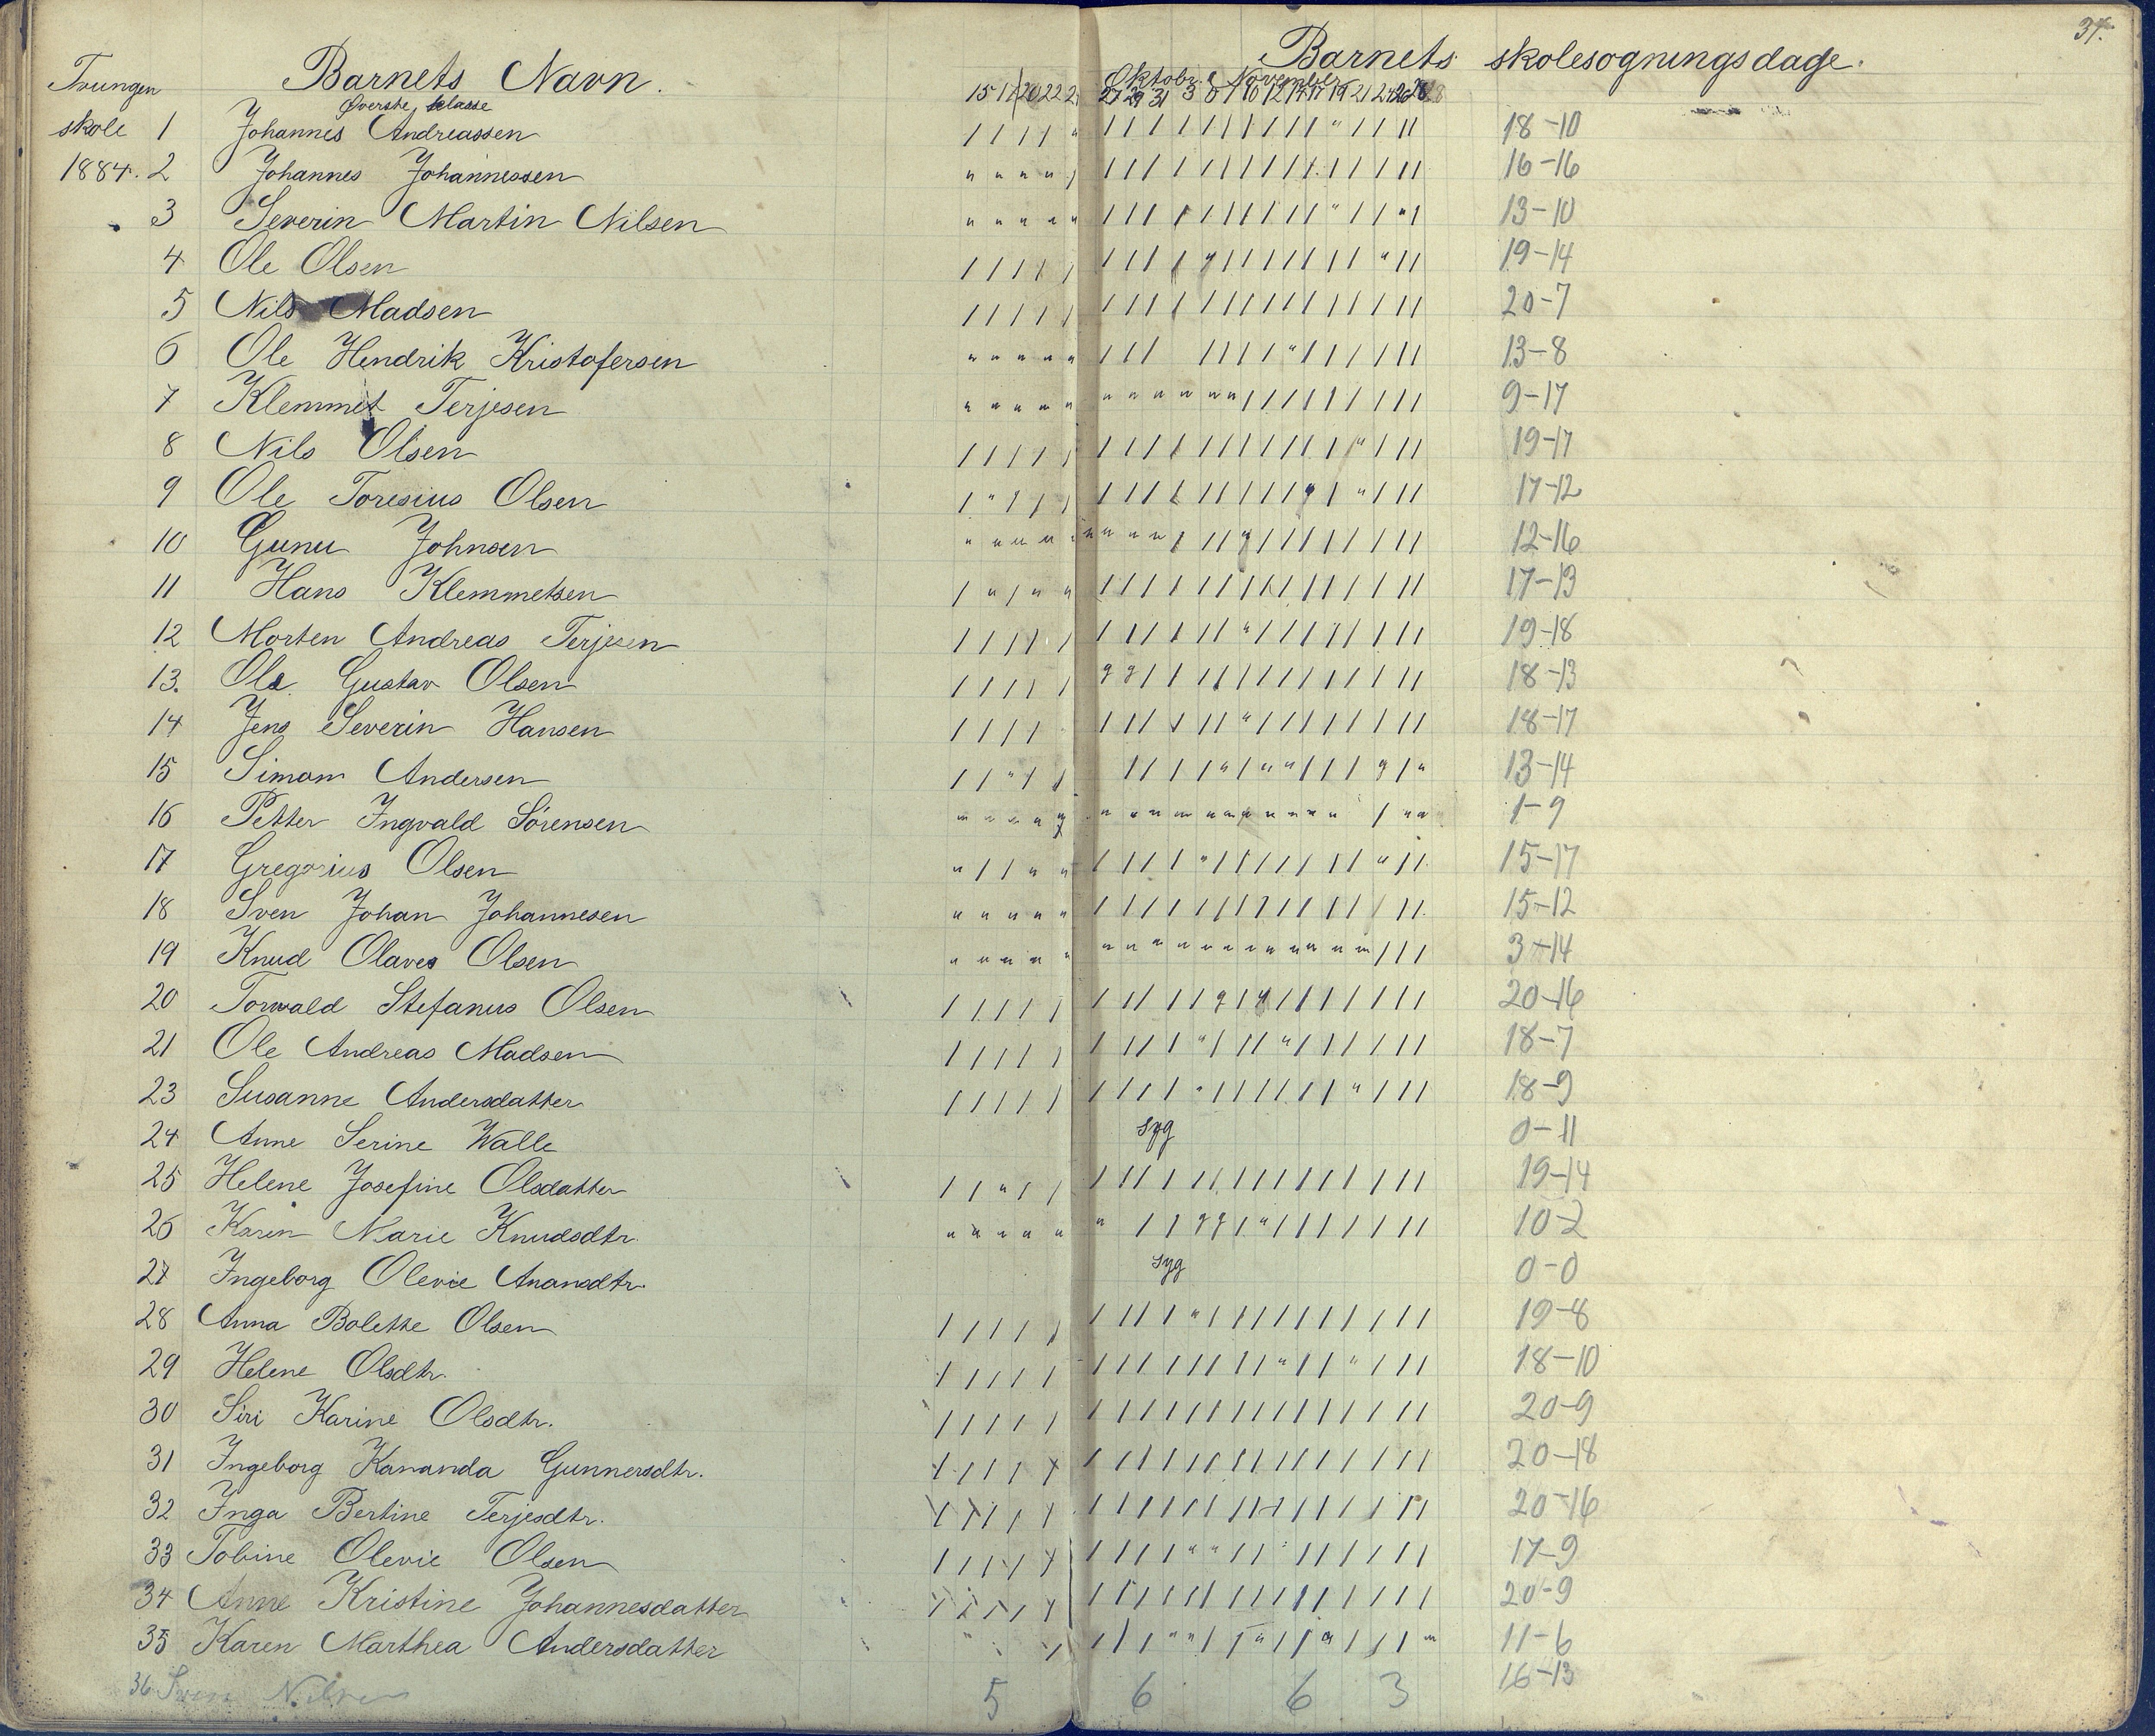 34.
Barnets Navn. Barnets skolesøgningsdage.
Tvungen Øverste klasse Oktobr. & November
15 17 20 22 27 29 31 3 8 10 12 19 21 24 26 28
skole 1 Johannes Andreassen 18-10
1884. 2 Johannes Johannessen 16-16
3 Severin Martin Nilsen 13-10
4 Ole Olsen 19-14
5 Nils Madsen 20-7
6 Ole Hendrik Kristofersen 13-8
7 Klemmet Terjesen 9-17
8 Nils Olsen 19-17
9 Ole Toresius Olsen 17-12
10 Gunu Johnsen 12-16
11 Hans Klemmetsen 17-13
12 Morten Andreas Terjesen 19-18
13. Ole Gustav Olsen 18-13
14 Jens Severin Hansen 18-17
15 Simom Andersen 13-14
16 Petter Ingvald Sørensen 1-9
17 Gregorius Olsen 15-17
18 Sven Johan Johannesen 15-12
19 Knud Olaves Olsen 3-14
20 Torwald Stefanus Olsen 20-16
21 Ole Andreas Madsen 18-7
23 Susanne Andersdatter 18-9
24 Anne Serine Walle syg 0-11
25 Helene Josefine Olsdatter 19-14
26 Karen Marie Knudsdtr. 10-2
27 Ingeborg Olevie Anansdtr. syg 0-0
28 Anna Bolette Olsen 19-8
29 Helene Olsdtr. 18-10
30 Siri Karine Olsdtr. 20-9
31 Ingeborg Kananda Gunnersdtr. 20-18
32 Inga Bertine Terjesdtr. 20-16
33 Tobine Olevie Olsen 17-9
34 Anne Kristine Johannesdatter 20-9
35 Karen Marthea Andersdatter 11-6
36 Sven Nilsen 5 6 6 3 16-13